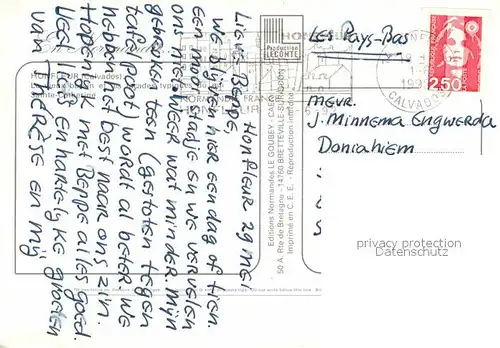 Honfleur 29 mei
Lieve Beppe,
We blijven hier een dag of tien.
een mooi stadje en we vervelen
ons niet. Weer wat minder. Mijn
gebroken teen (gestoten tegen
tafelpoot) wordt al beter. We
hebben het best naar ons zin.
Hopen dat met Beppe alles goed.
Lees liefs en hartelijke groeten
van THERÈSE en mij
HONFLEUR (Calvados)
Production
LECONTE
Editions Normandes LE GOUBEY - CAEN
50 A. Rte de Bretagne - 14760 BRETTEVILLE-SUR-ODON
Imprimé en C. E. E. - Reproduction interdite
LES Pays-Bas
CALVADOS
2,50
LA POSTE
MEVR.
J. MINNEMA ENGWERDA
DONIAHIEM
privacy protection
Datenschutz